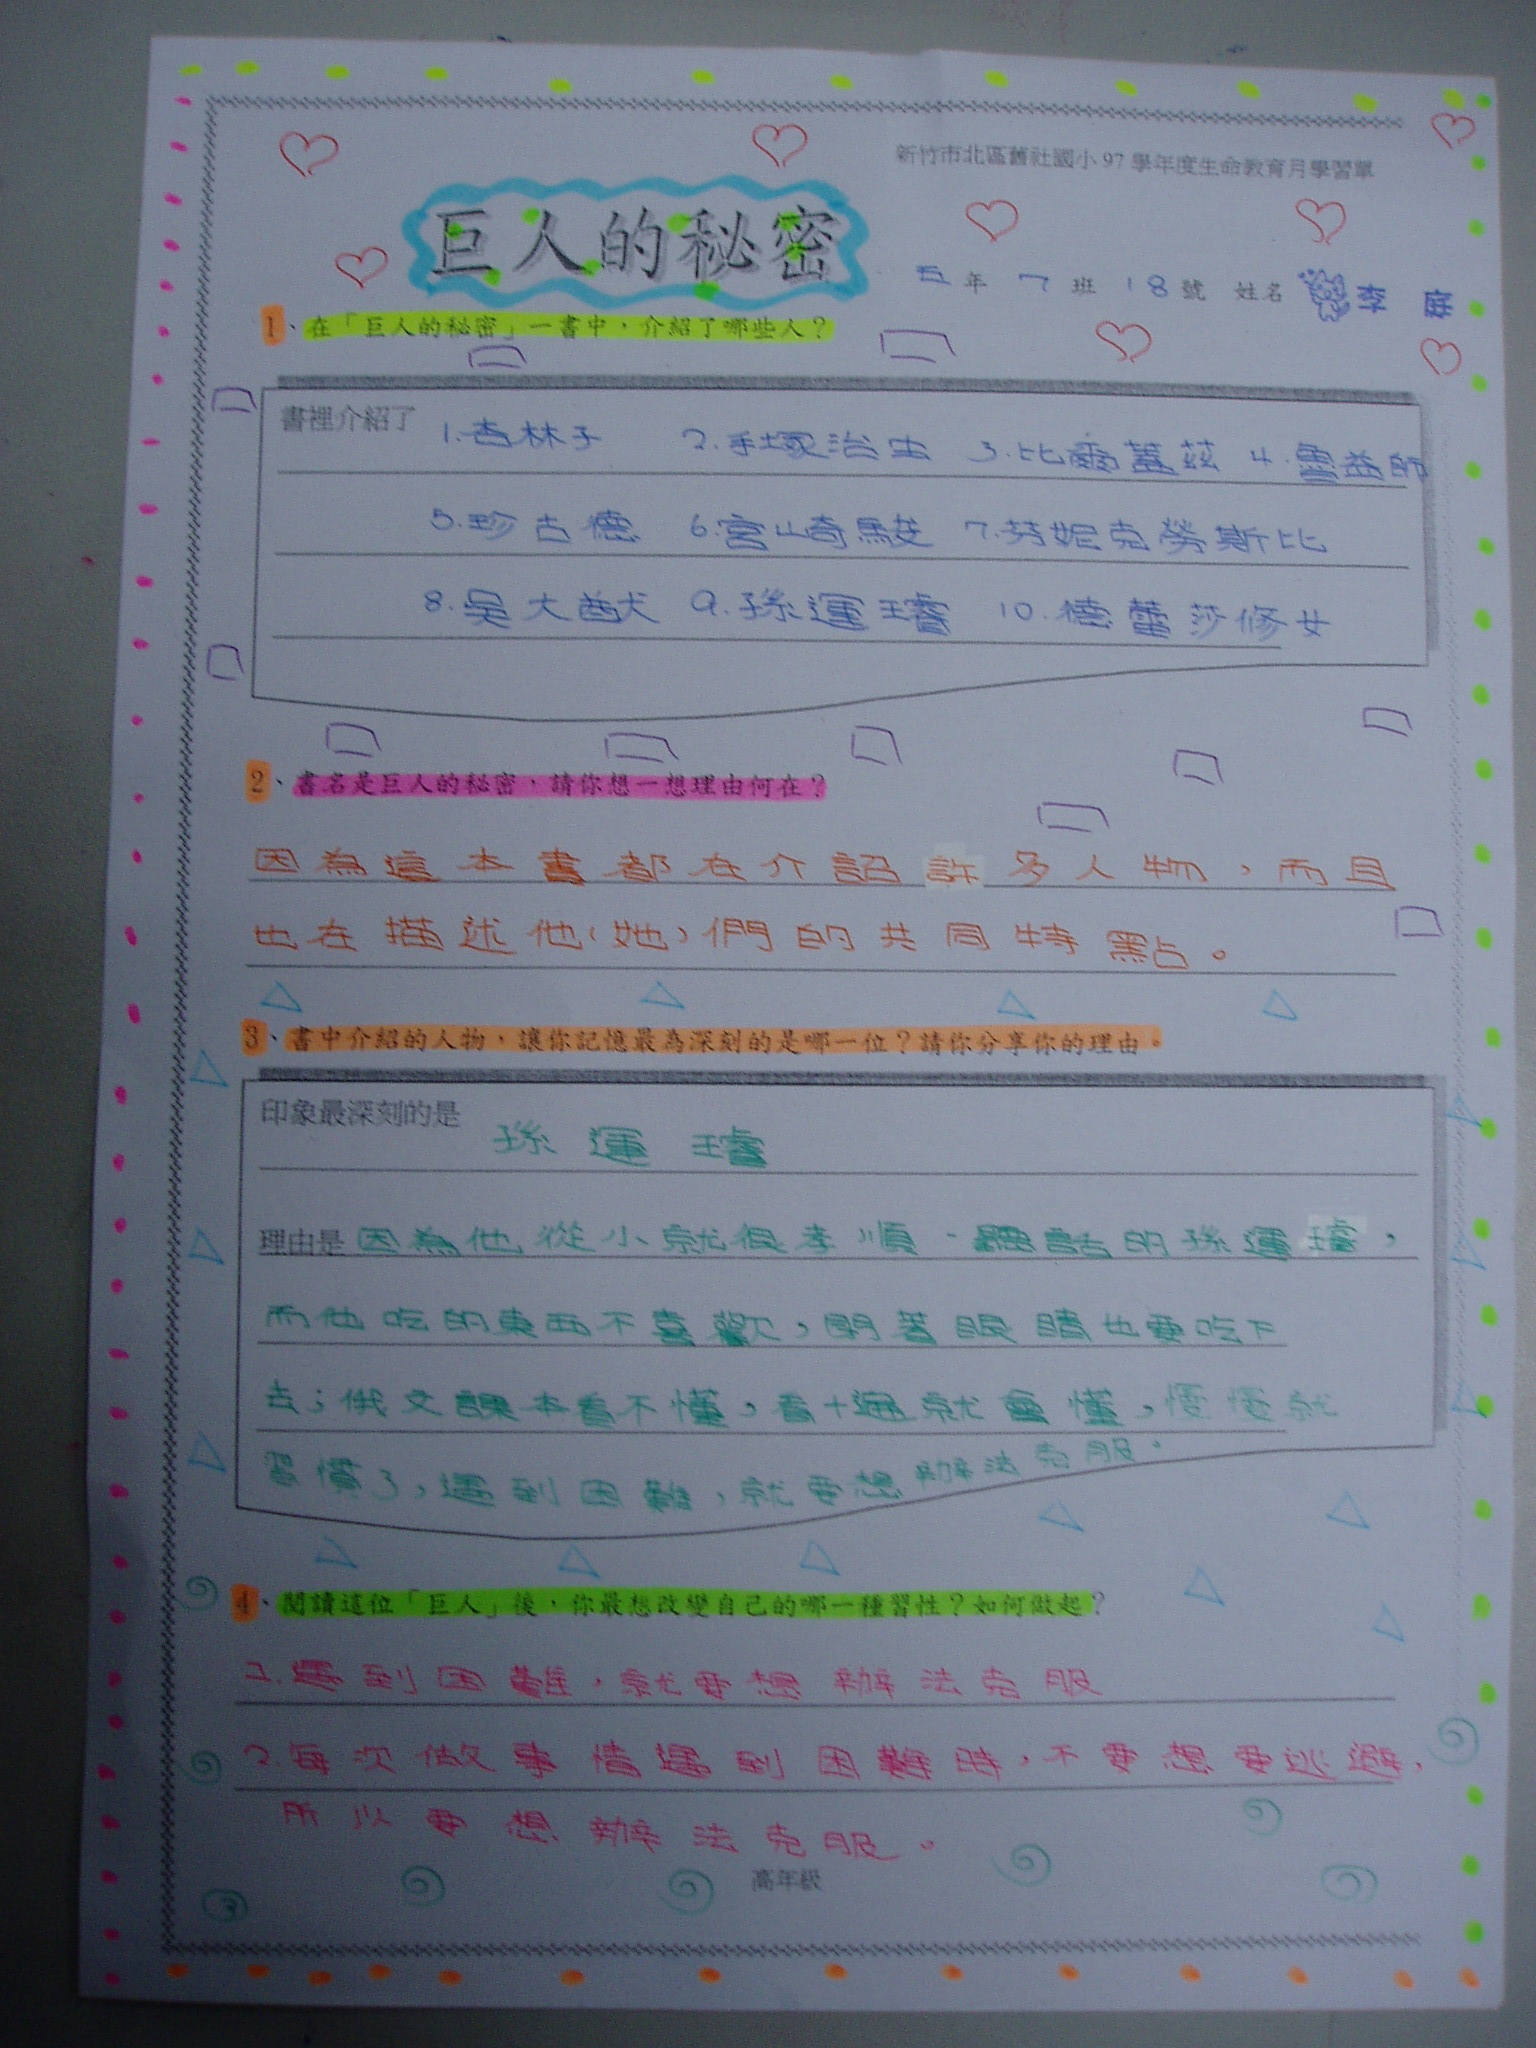 新竹市北區舊社國小 97 學年度生命教育月學習單
巨人的秘密
五年 7 班 18 號 姓名 李 庭
1、在「巨人的秘密」一書中,介紹了哪些人?
書裡介紹了 1.杏林子 2.手塚治虫 3.比爾蓋茲 4.魯益師
5.珍古德 6.宮崎駿 7.芬妮克勞斯比
8.吳大猷 9.孫運璿 10.德蕾莎修女
2、書名是巨人的秘密,請你想一想理由何在?
因為這本書都在介紹許多人物,而且
也在描述他(她)們的共同特點。
3、書中介紹的人物,讓你記憶最為深刻的是哪一位?請你分享你的理由。
印象最深刻的是 孫運璿
理由是因為他從小就很孝順、聽話的孫運璿,
而他吃的東西不喜歡,閉著眼睛也要吃下
去;俄文課本看不懂,看十遍就會懂,慢慢就
習慣了,遇到困難,就要想辦法克服。
4、閱讀這位「巨人」後,你最想改變自己的哪一種習性?如何做起?
1.遇到困難,就要想辦法克服
2.每次做事情遇到困難時,不要想要逃避,
所以要想辦法克服。
高年級